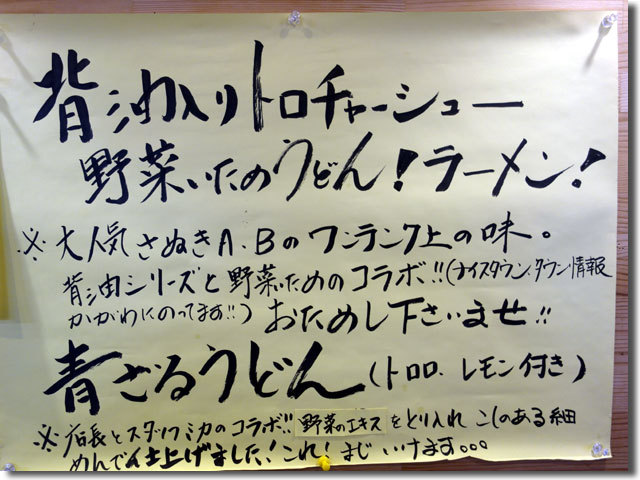 背油入りトロチャーシュー
野菜いためうどん！ラーメン！
※大人気さぬきA.Bのワンランク上の味。
背油シリーズと野菜いためのコラボ!!(ナイスタウン、タウン情報
かがわにのってます!!) おためし下さいませ!!
青ざるうどん(トロロ、レモン付き)
※店長とスタッフミカのコラボ!! 野菜のエキスをとり入れ こしのある細
めんで仕上げました！これ！まじいけます。。。